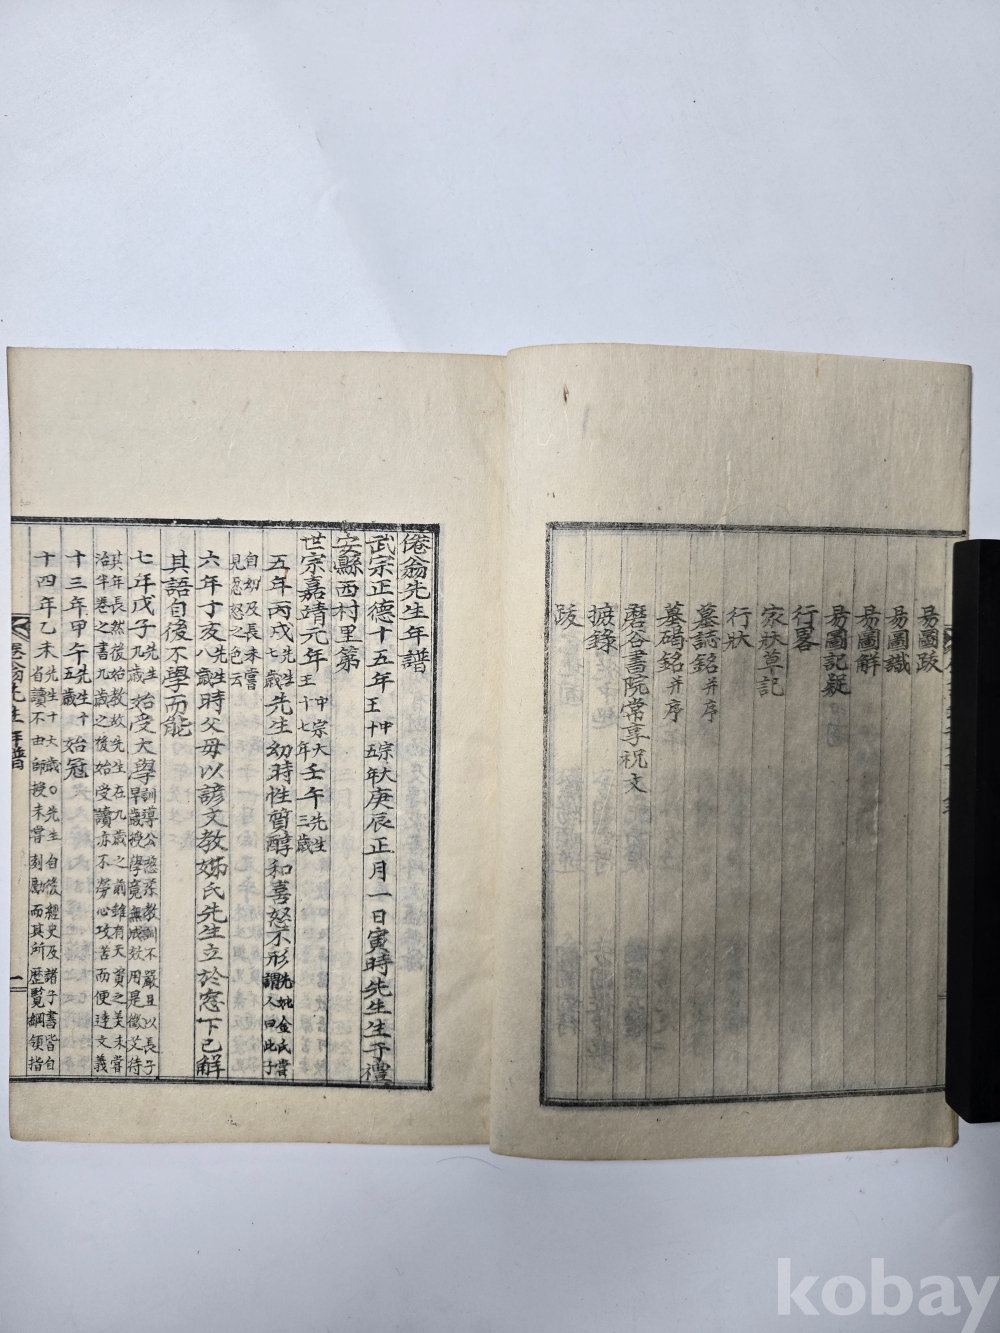 易圖跋
易圖識
易圖解
易圖記疑
行畧
家狀草記
行狀
墓誌銘并序
墓碣銘并序
磨谷書院常享祝文
摭錄
跋
倦翁先生年譜
武宗正德十五年 中宗大王十五年 庚辰正月一日寅時先生生于禮
安縣西村里第
世宗嘉靖元年 中宗大王十七年 壬午 先生三歲
五年丙戌 先生七歲 先生幼時性質醇和喜怒不形 先妣金氏嘗謂人曰此子
自幼及長未嘗見忿怒之色云
六年丁亥 八歲 時父母以諺文敎姊氏先生立於窓下已解
其語自後不學而能
七年戊子 先生九歲 始受大學 訓導公慈柔敎訓不嚴且以長子早歲授學竟無成效用是懲艾待
其年長然後始敎故先生在九歲之前雖有天資之美未嘗治半卷之書九歲之後始受讀亦不勞心攻苦而便達文義
十三年甲午 先生十五歲 始冠
十四年乙未 先生十六歲○先生自後經史及諸子書皆自省讀不由師授未嘗刻勵而其所歷覽綱領指
倦翁先生年譜
一
kobay